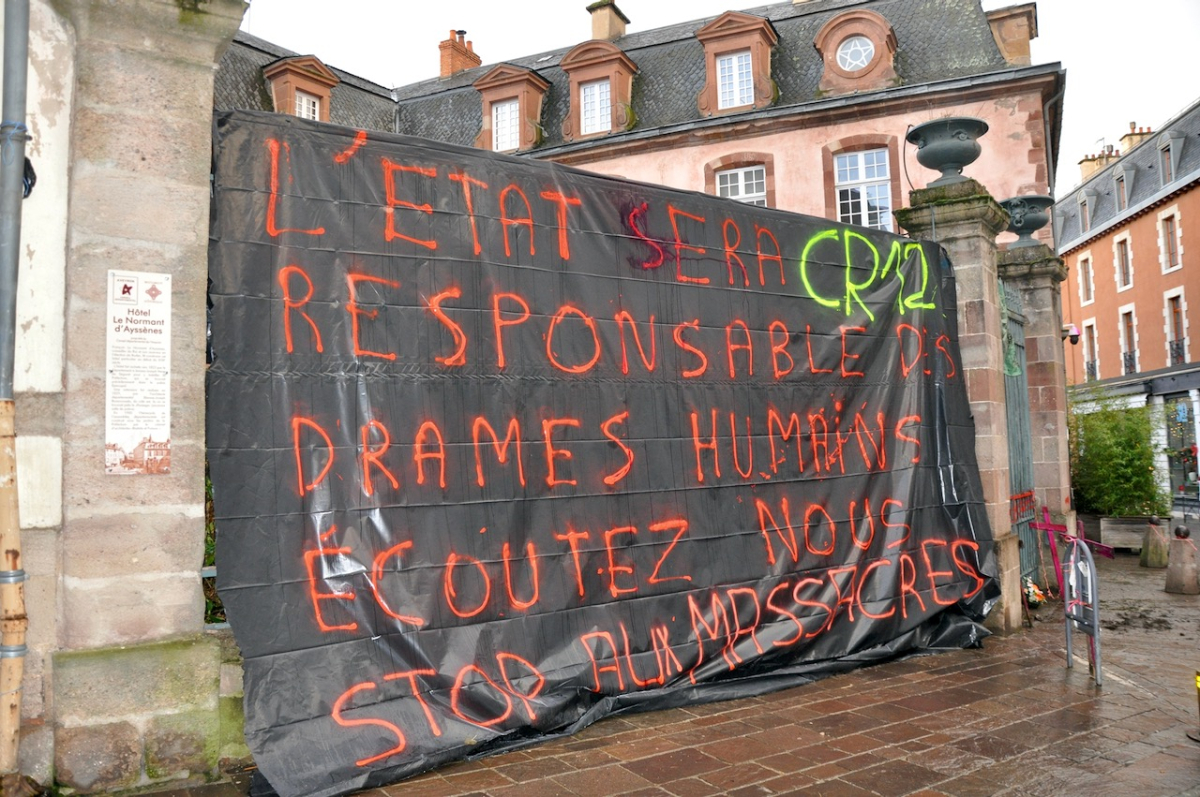 L'ÉTAT SERA CR12
RESPONSABLE DES
DRAMES HUMAINS
ÉCOUTEZ NOUS
STOP AUX MASSACRES
Hôtel
Le Normant
d'Ayssènes